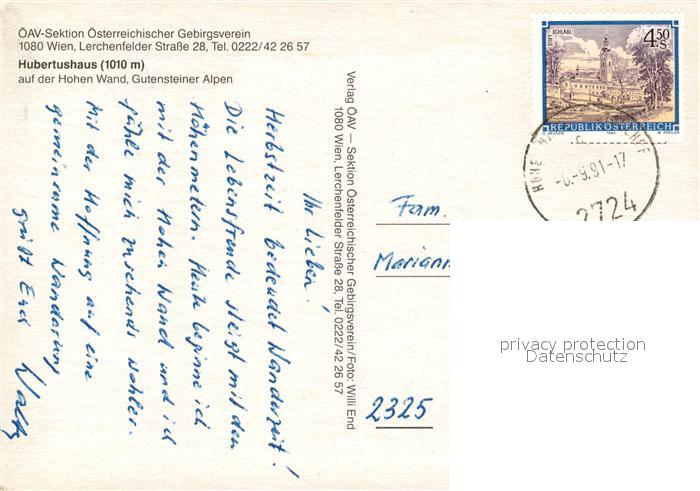 ÖAV-Sektion Österreichischer Gebirgsverein
1080 Wien, Lerchenfelder Straße 28, Tel. 0222/42 26 57
Hubertushaus (1010 m)
auf der Hohen Wand, Gutensteiner Alpen
Ihr Lieben!
Herbstzeit bedeutet Wanderzeit!
Die Lebensfreude steigt mit den
Höhenmetern. Heute beginne ich
mit der Hohen Wand und ich
fühle mich zusehends wohler.
Mit der Hoffnung auf eine
gemeinsame Wanderung
grüßt Euch
Verlag ÖAV – Sektion Österreichischer Gebirgsverein/Foto: Willi End
1080 Wien, Lerchenfelder Straße 28, Tel. 0222/42 26 57
STIFT SCHLÄGL
4.50 S
REPUBLIK ÖSTERREICH
1984
HOHE
-6.-9.91-17
2724
Fam.
Mariann
2325
privacy protection
Datenschutz